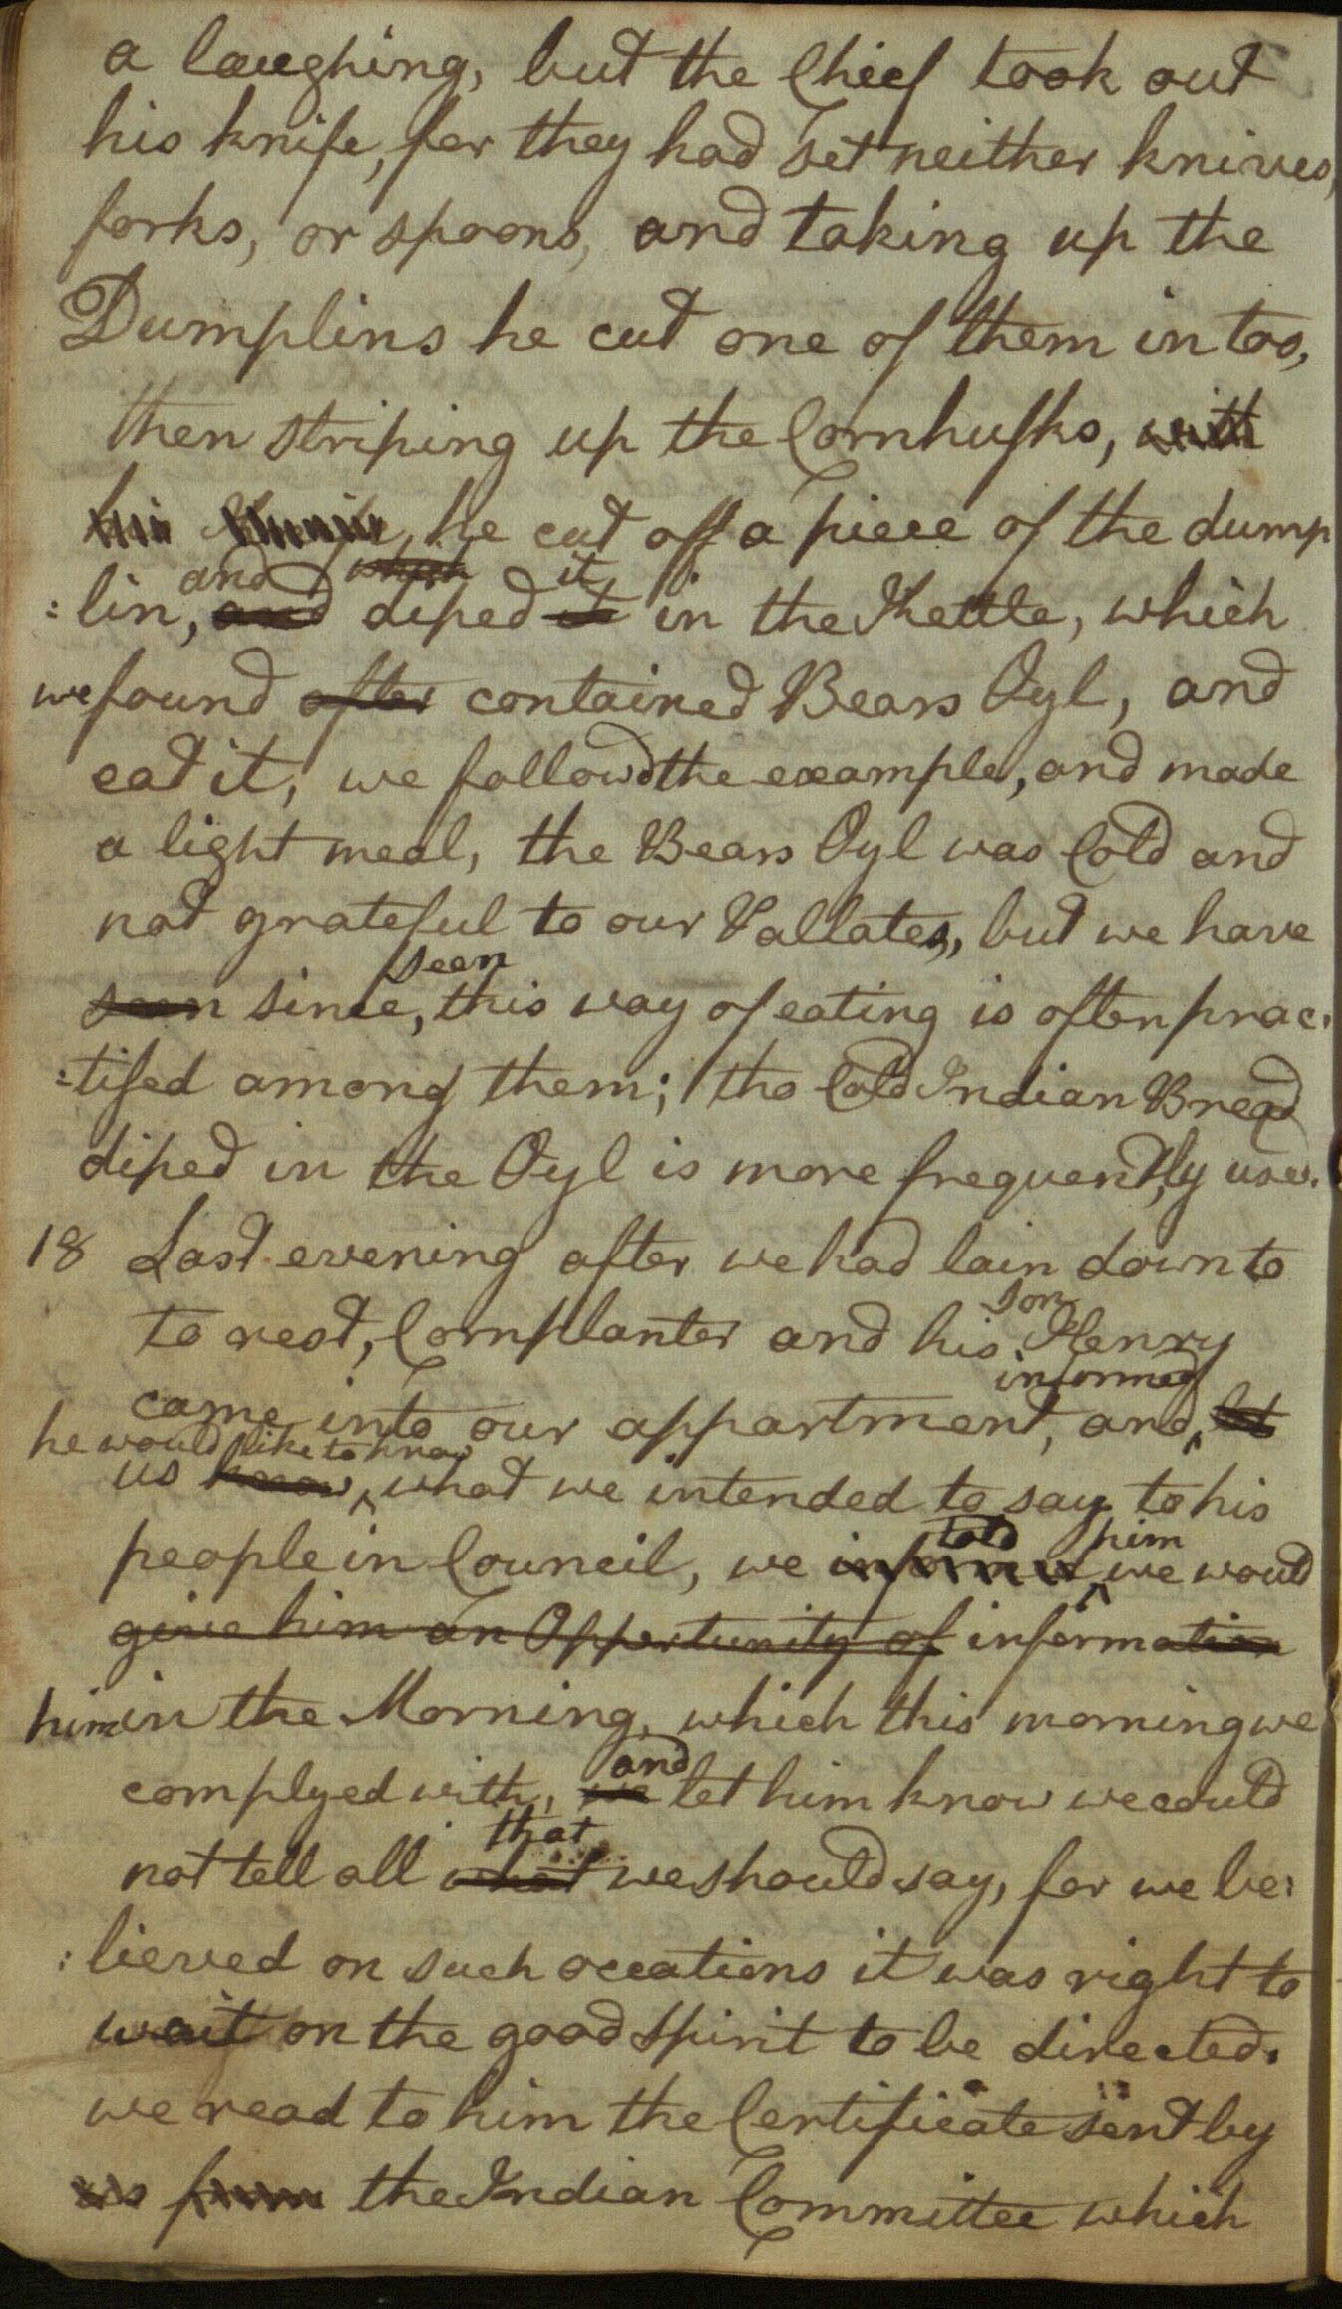 a laughing, but the Chief took out
his knife, for they had set neither knives,
forks, or spoons, and taking up the
Dumplins he cut one of them in too,
then striping up the Cornhusks, with
his he cut off a piece of the dump
and which it
: lin, and diped it in the Kettle, which
we found after contained Bears Oyl, and
eat it, we followd the example, and made
a light meal, the Bears Oyl was Cold and
not grateful to our Pallates, but we have
seen
seen since, this way of eating is often prac:
:tised among them; tho Cold Indian Bread
diped in the Oyl is more frequently used.
18 Last evening after we had lain down to
son
to rest, Cornplanter and his Henry
informed
came into our appartment, and let
he would like to know
us know, what we intended to say to his
told him
people in Council, we informed we would
give him an Opportunity of information
him in the Morning, which this morning we
and
complyed with, we let him know we could
that
not tell all what we should say, for we be:
: lieved on such occations it was right to
wait on the good Spirit to be directed.
we read to him the Certificate sent by
us from the Indian Committee which